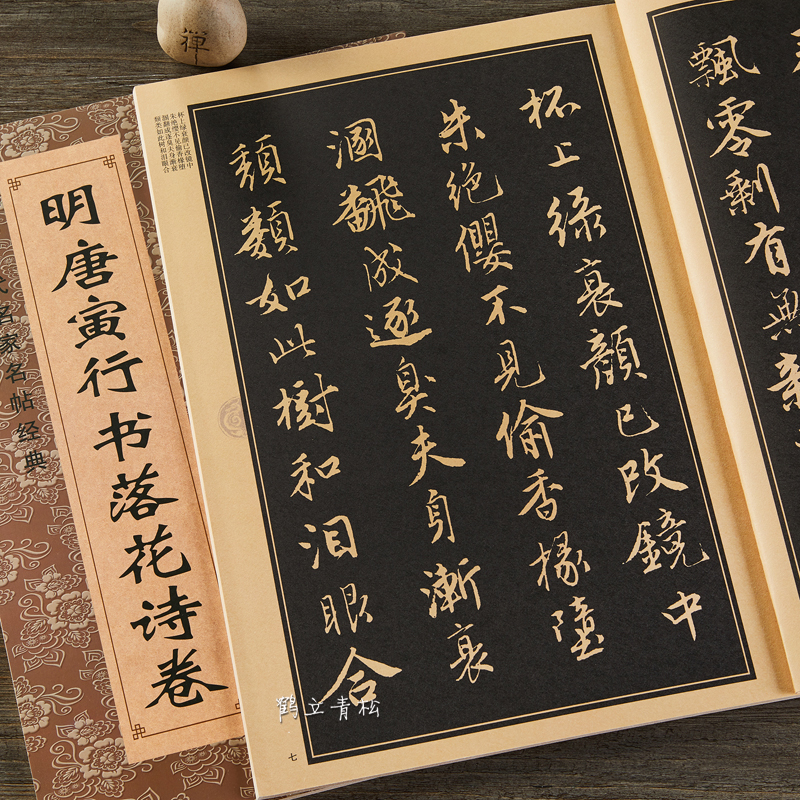 禪
飄零剩有
杯上緑衰顏已改鏡中
朱絶纓不見偷香掾墮
溷飜成逐臭夫身漸衰
頹類如此樹和泪眼合
杯上绿衰颜已改镜中
朱绝缨不见偷香掾堕
溷翻成逐臭夫身渐衰
颓类如此树和泪眼合
七
明唐寅行书落花诗卷
代名家名帖经典
鹤立青松